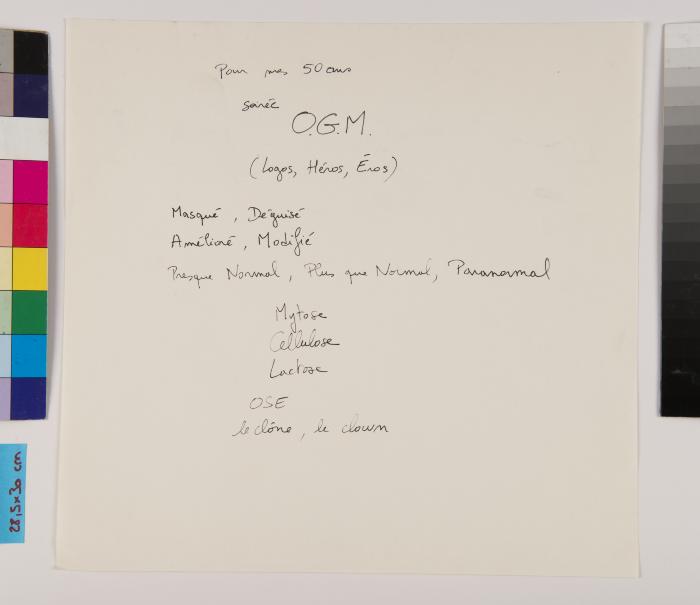 Pour mes 50 ans
soirée
O.G.M.
(Logos, Héros, Éros)
Masqué, Déguisé
Amélioré, Modifié
Presque Normal, Plus que Normal, Paranormal
Mytose
Cellulose
Lactose
OSE
le clône, le clown
28,5x30 cm